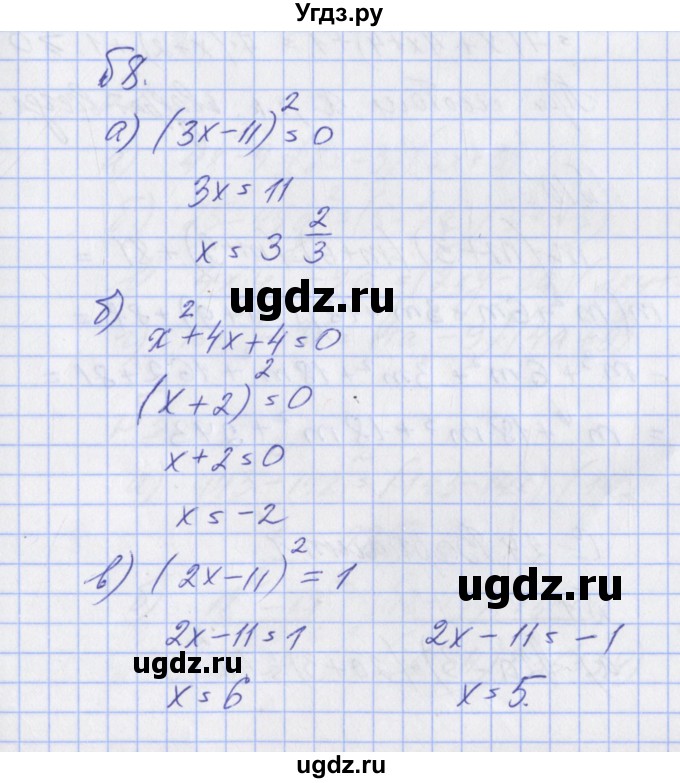 Угдз.ру
б8.
а) (3x-11)² = 0
3x = 11
x = 3 2/3
ugdz.ru
б)
x² + 4x + 4 = 0
(x + 2)² = 0
x + 2 = 0
x = -2
в) (2x - 11)² = 1
ugdz.ru
2x - 11 = 1 2x - 11 = -1
ugdz.ru
x = 6 x = 5.
ugdz.ru